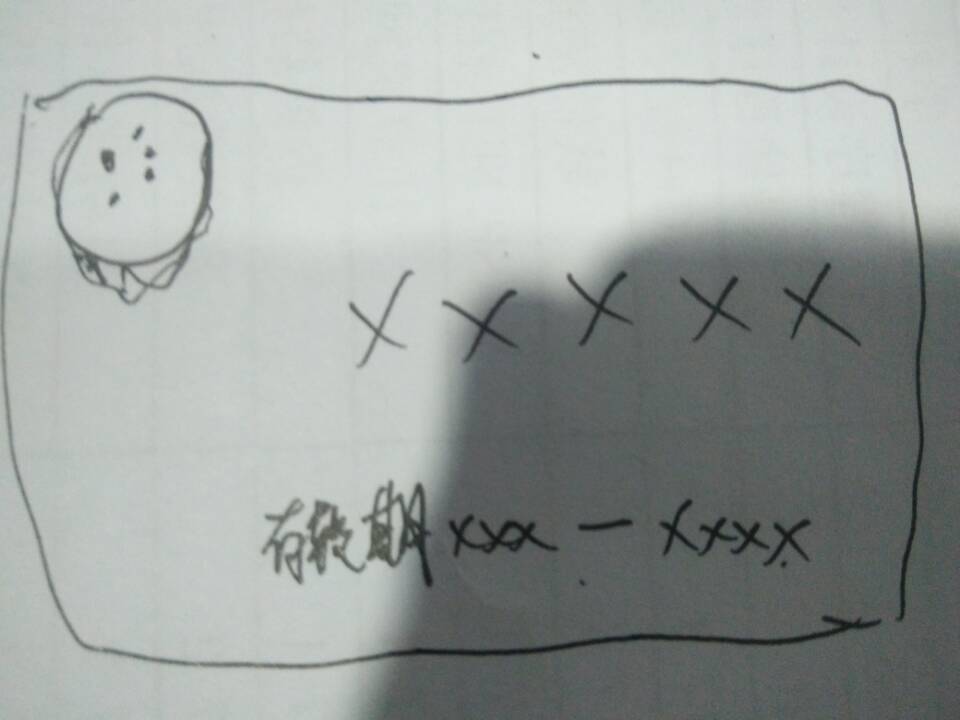 X X X X X
有效期 xxx — xxxx